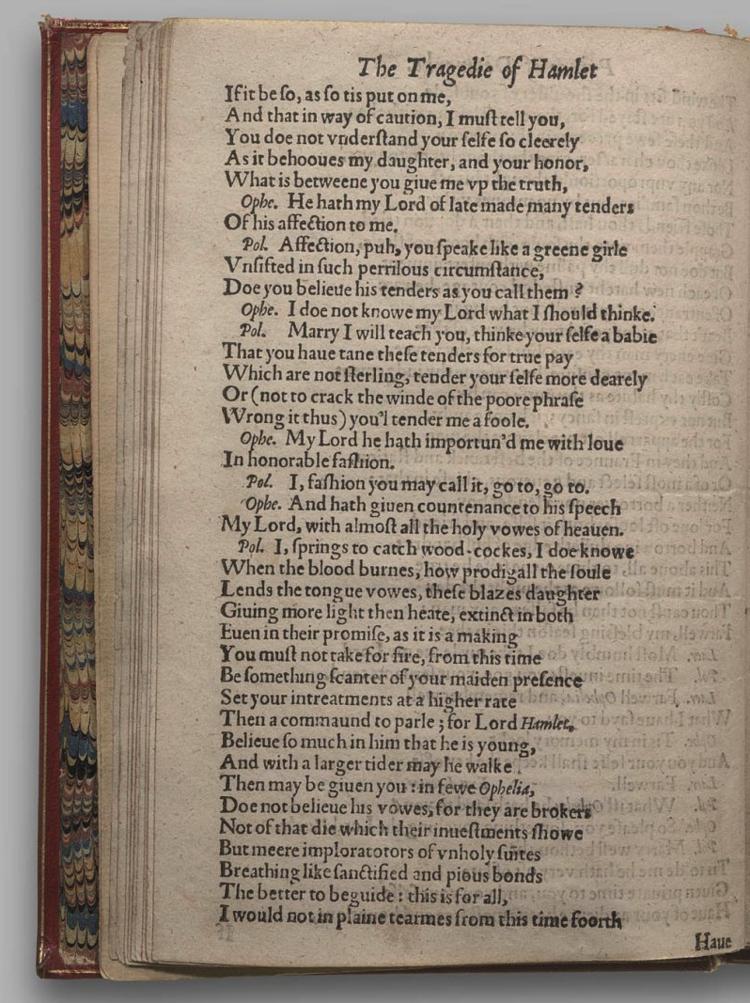 The Tragedie of Hamlet
If it be ſo, as ſo tis put on me,
And that in way of caution, I muſt tell you,
You doe not vnderſtand your ſelfe ſo cleerely
As it behooues my daughter, and your honor,
What is betweene you giue me vp the truth,
Ophe. He hath my Lord of late made many tenders
Of his affection to me.
Pol. Affection, puh, you ſpeake like a greene girle
Vnſifted in ſuch perrilous circumſtance,
Doe you belieue his tenders as you call them?
Ophe. I doe not knowe my Lord what I ſhould thinke.
Pol. Marry I will teach you, thinke your ſelfe a babie
That you haue tane theſe tenders for true pay
Which are not ſterling, tender your ſelfe more dearely
Or (not to crack the winde of the poore phraſe
Wrong it thus) you'l tender me a foole.
Ophe. My Lord he hath importun'd me with loue
In honorable faſhion.
Pol. I, faſhion you may call it, go to, go to.
Ophe. And hath giuen countenance to his ſpeech
My Lord, with almoſt all the holy vowes of heauen.
Pol. I, ſprings to catch wood-cockes, I doe knowe
When the blood burnes, how prodigall the ſoule
Lends the tongue vowes, theſe blazes daughter
Giuing more light then heate, extinct in both
Euen in their promiſe, as it is a making
You muſt not take for fire, from this time
Be ſomething ſcanter of your maiden preſence
Set your intreatments at a higher rate
Then a commaund to parle; for Lord Hamlet,
Belieue ſo much in him that he is young,
And with a larger tider may he walke
Then may be giuen you: in fewe Ophelia,
Doe not belieue his vowes, for they are brokers
Not of that die which their inueſtments ſhowe
But meere imploratotors of vnholy ſuites
Breathing like ſanctified and pious bonds
The better to beguide: this is for all,
I would not in plaine tearmes from this time foorth
Haue